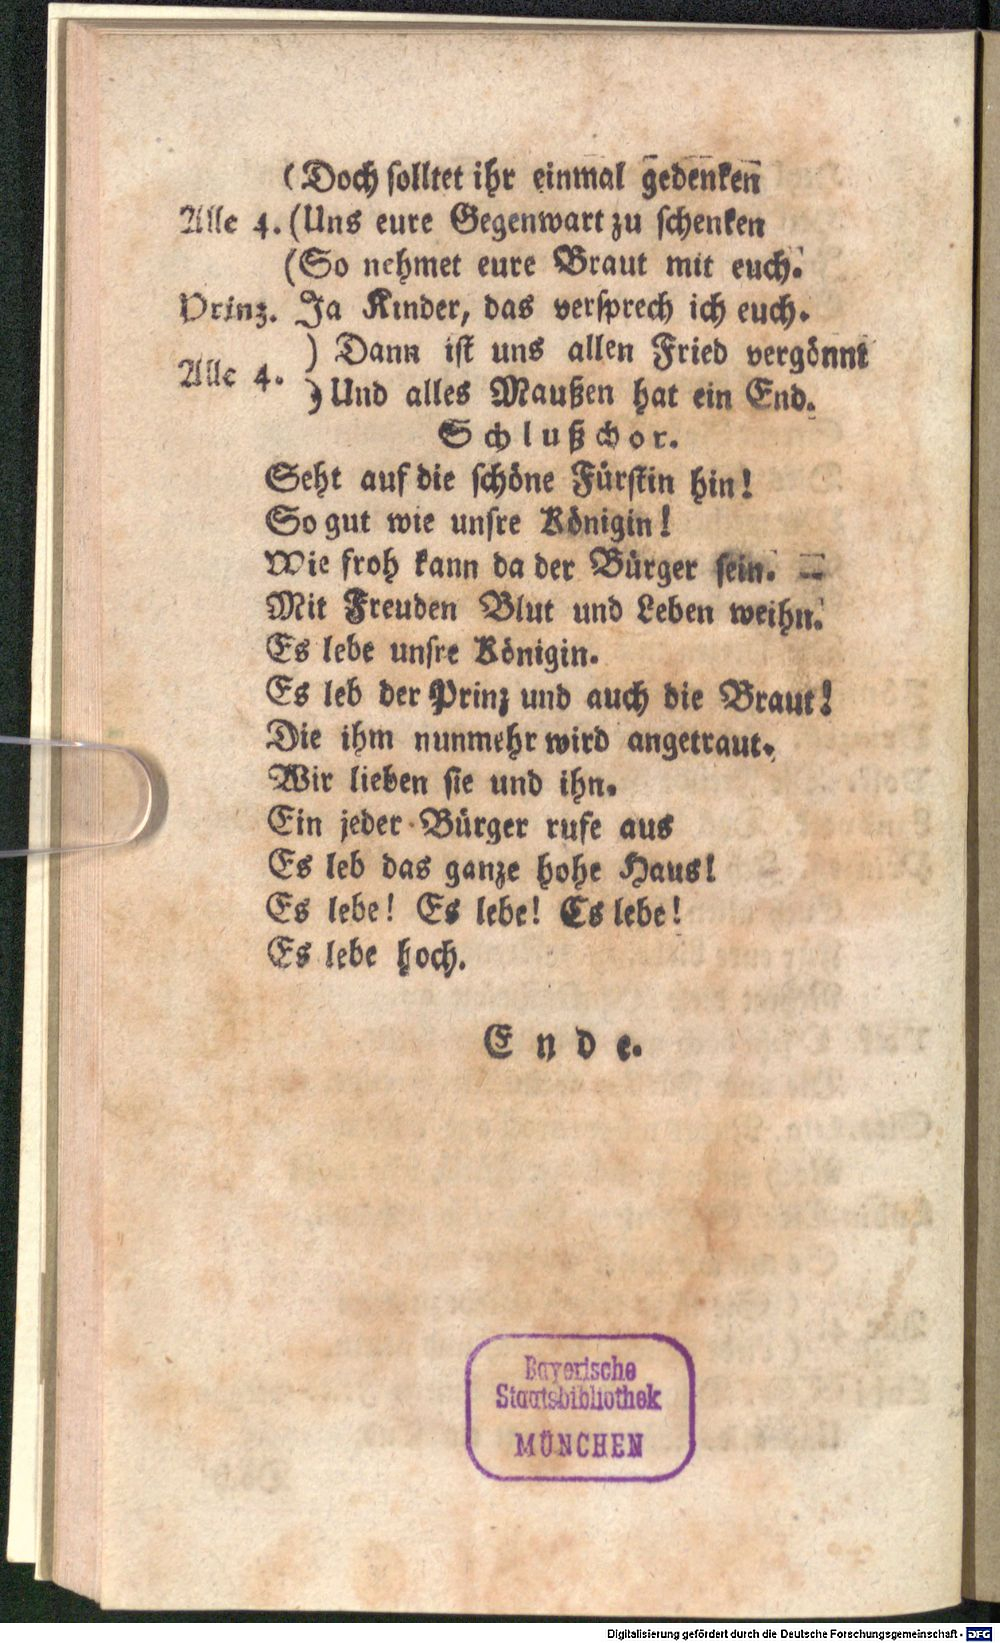 (Doch solltet ihr einmal gedenken
Alle 4. (Uns eure Gegenwart zu schenken
(So nehmet eure Braut mit euch.
Prinz. Ja Kinder, das versprech ich euch.
) Dann ist uns allen Fried vergönnt
Alle 4.
) Und alles Maußen hat ein End.
Schlußchor.
Seht auf die schöne Fürstin hin!
So gut wie unsre Königin!
Wie froh kann da der Bürger sein. —
Mit Freuden Blut und Leben weihn.
Es lebe unsre Königin.
Es leb der Prinz und auch die Braut!
Die ihm nunmehr wird angetraut.
Wir lieben sie und ihn.
Ein jeder Bürger rufe aus
Es leb das ganze hohe Haus!
Es lebe! Es lebe! Es lebe!
Es lebe hoch.
Ende.
Bayerische
Staatsbibliothek
MÜNCHEN
Digitalisierung gefördert durch die Deutsche Forschungsgemeinschaft - DFG